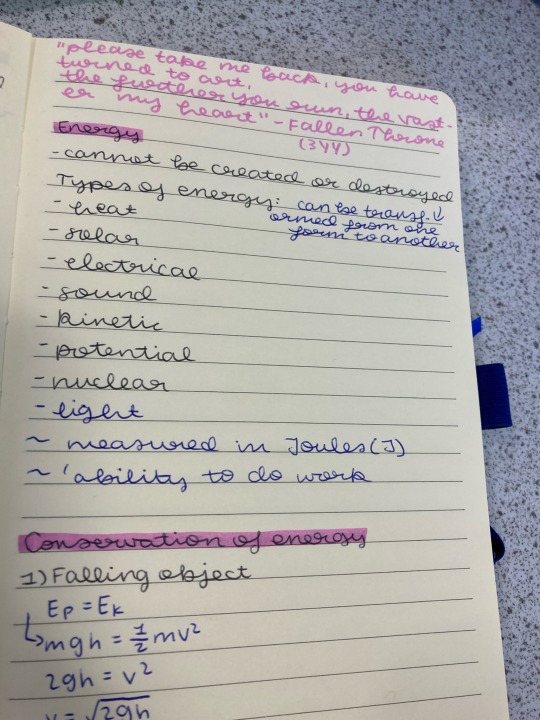 "please take me back, you have
turned to art,
the further you run, the vast-
er my heart" - Fallen Throne
(3YY)
Energy
- cannot be created or destroyed
Types of energy: can be transf.↓
ormed from one
form to another
- heat
- solar
- electrical
- sound
- kinetic
- potential
- nuclear
- light
~ measured in Joules (J)
~ 'ability to do work
Conservation of energy
1) Falling object
Ep = Ek
↳ mgh = 1/2 mv²
2gh = v²
v = √2gh